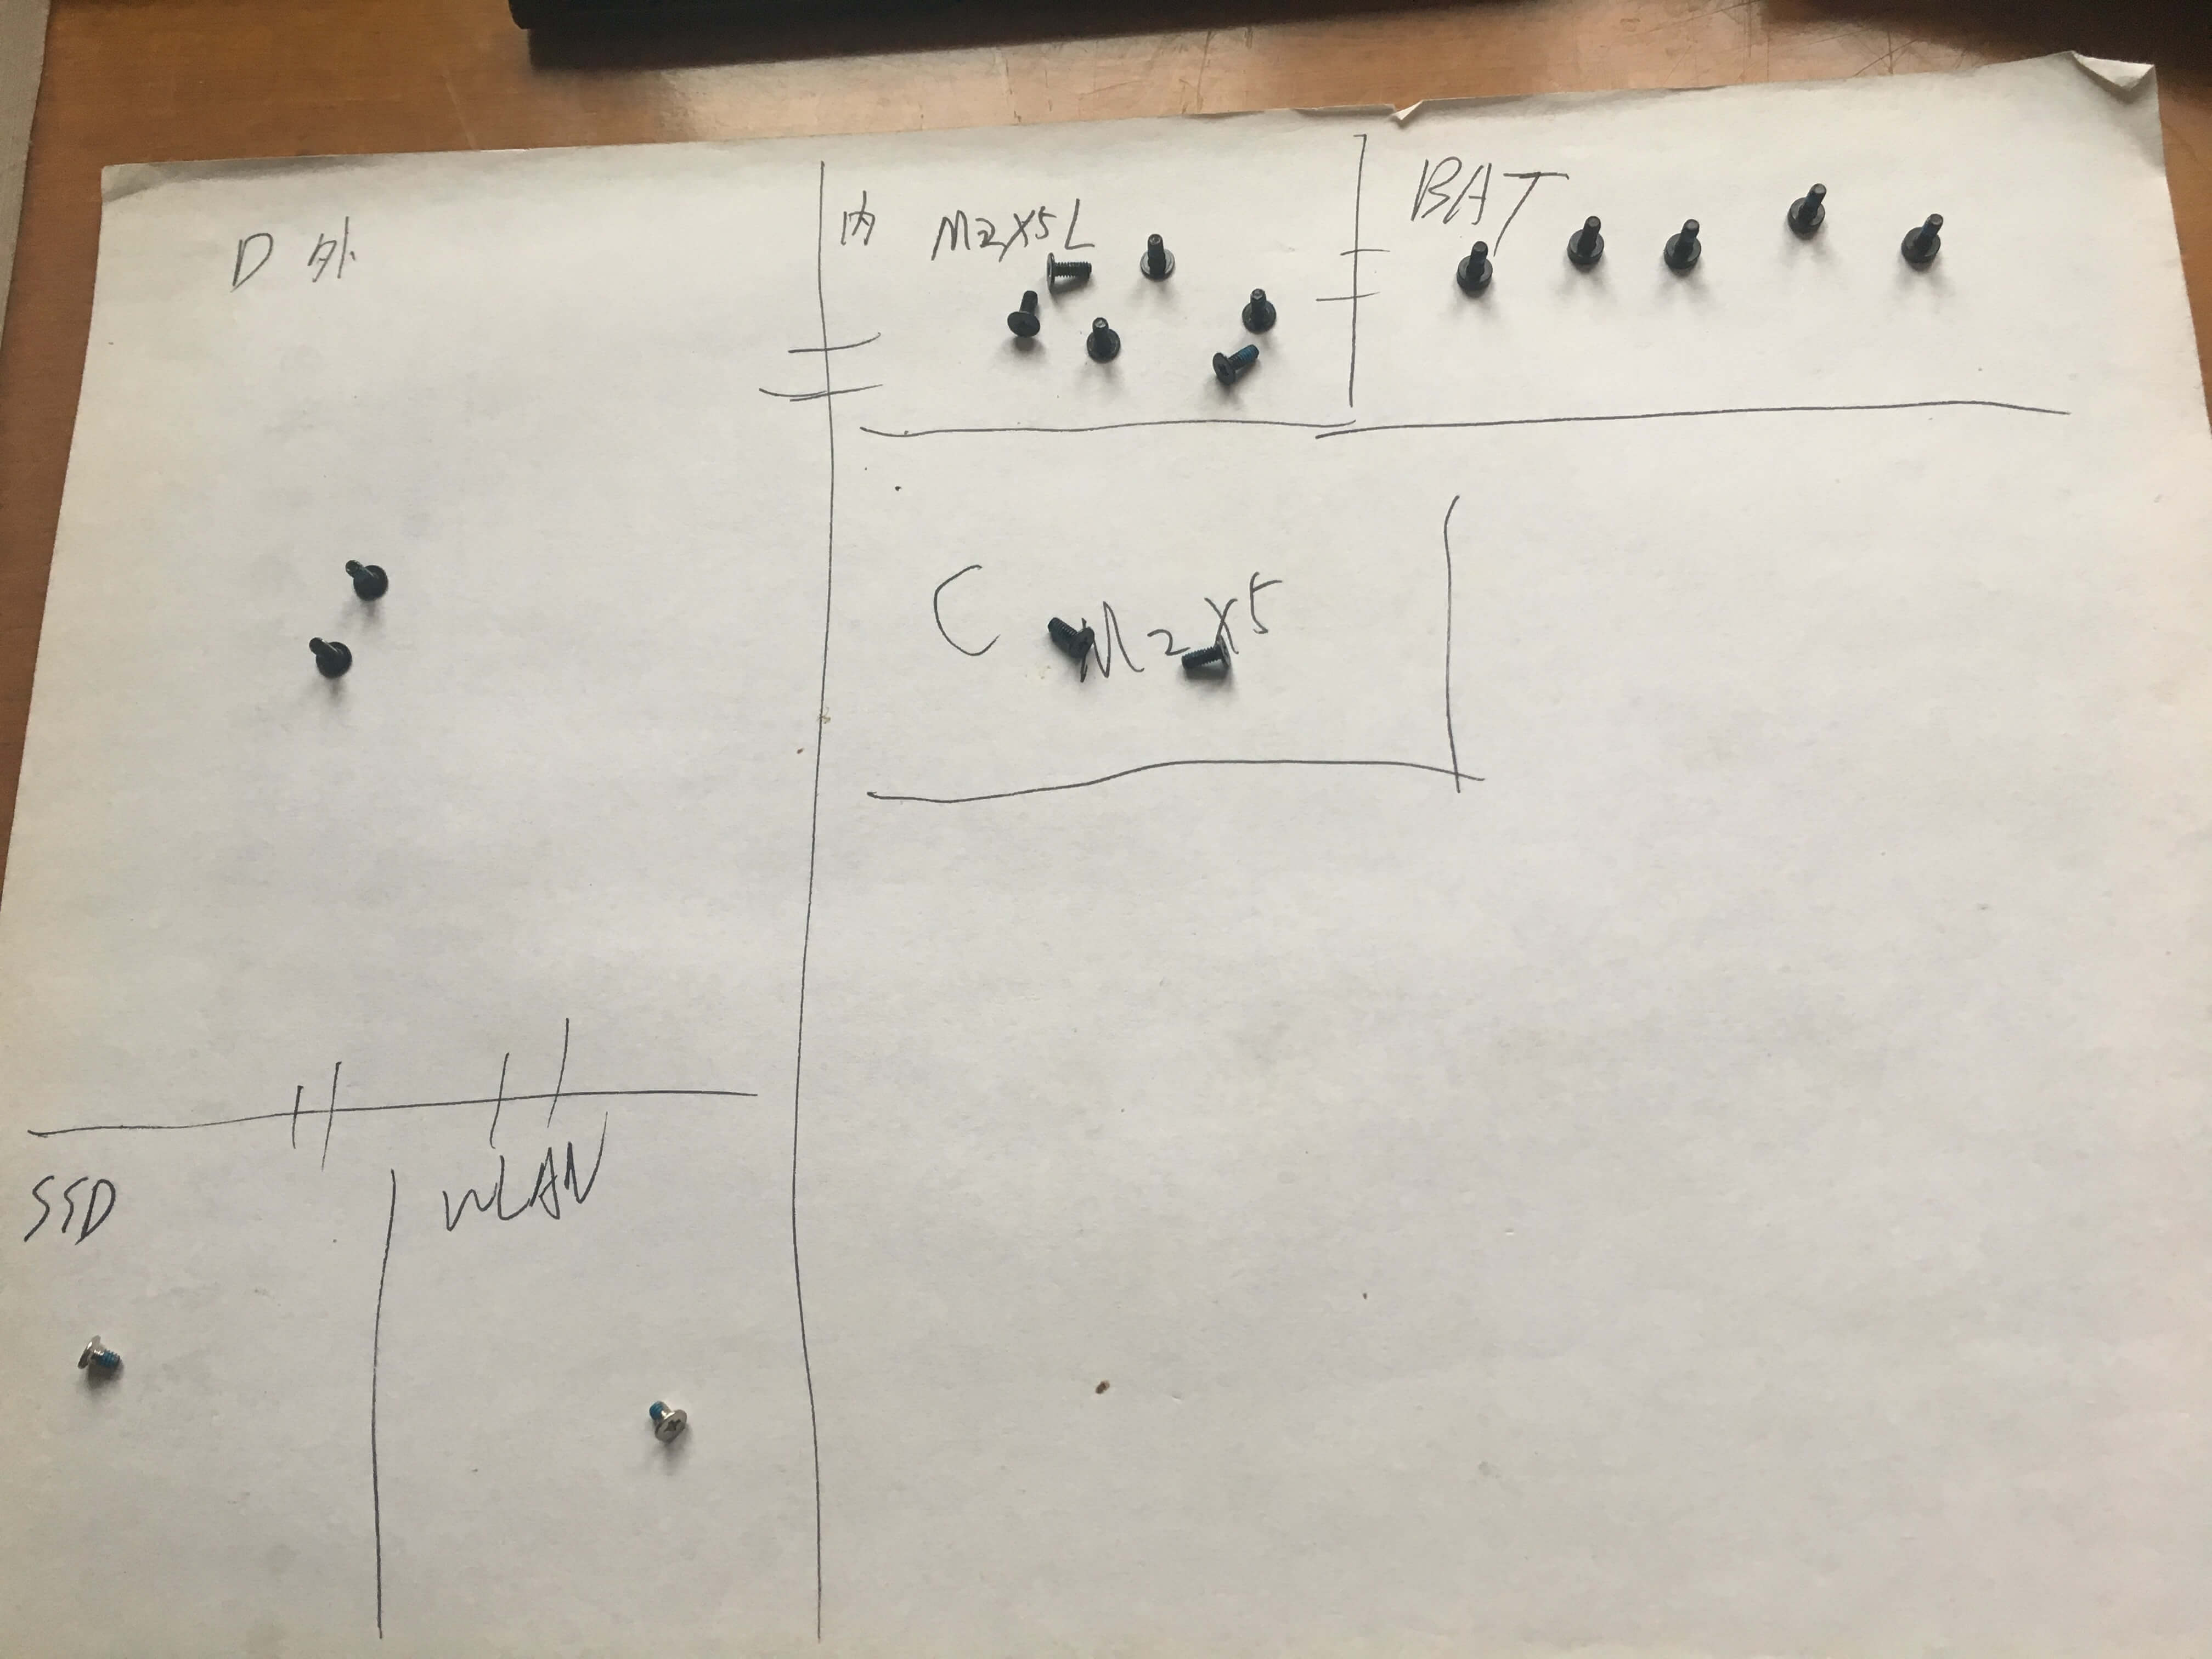 D 外
内 M2X5L
BAT
C M2X5
SSD
WLAN